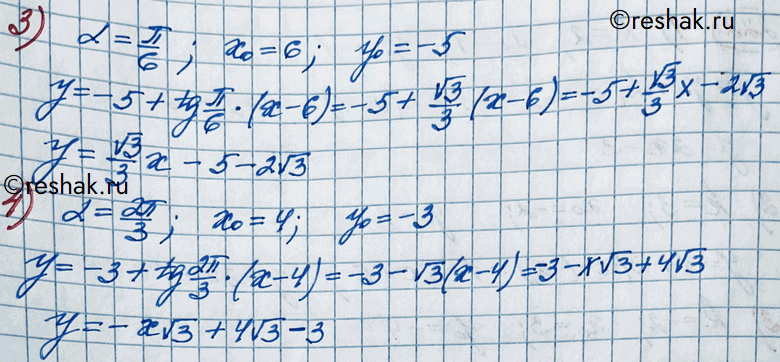 ©reshak.ru
3) α = π/6; x₀ = 6; y₀ = -5
y = -5 + tg π/6 · (x-6) = -5 + √3/3 (x-6) = -5 + √3/3 x - 2√3
y = √3/3 x - 5 - 2√3
©reshak.ru
4) α = 2π/3; x₀ = 4; y₀ = -3
y = -3 + tg 2π/3 · (x-4) = -3 - √3(x-4) = -3 - x√3 + 4√3
y = -x√3 + 4√3 - 3